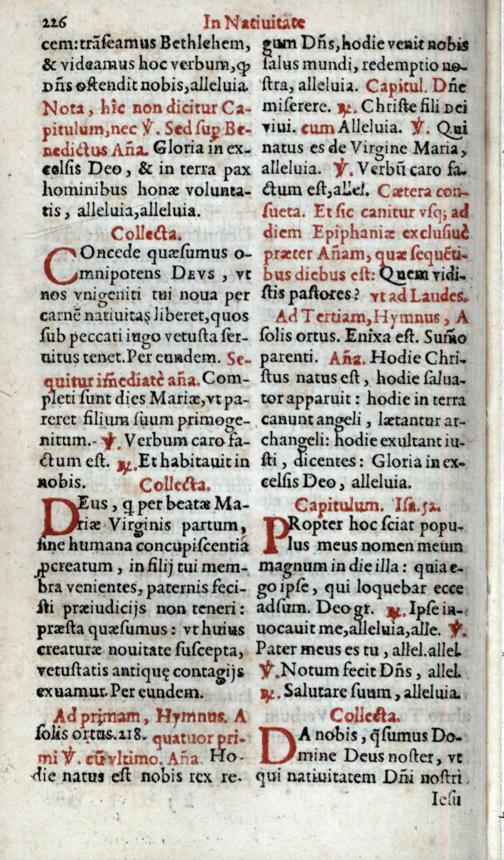 226
In Natiuitate
cem:trãseamus Bethlehem,
& videamus hoc verbum,ꝙ
Dñs ostendit nobis,alleluia.
Nota, hîc non dicitur Ca-
pitulum,nec ℣. Sed sup Be-
nedictus Aña. Gloria in ex-
celsis Deo, & in terra pax
hominibus bonæ volunta-
tis, alleluia,alleluia.
Collecta.
COncede quæsumus o-
mnipotens DEVS, vt
nos vnigeniti tui noua per
carnẽ natiuitas liberet,quos
sub peccati iugo vetusta ser-
uitus tenet.Per eundem. Se-
quitur im̃ediatè aña. Com-
pleti sunt dies Mariæ,vt pa-
reret filium suum primoge-
nitum. ℣. Verbum caro fa-
ctum est. ℟. Et habitauit in
nobis.
Collecta.
DEus, q per beatæ Ma-
riæ Virginis partum,
sine humana concupiscentia
ꝓcreatum, in filij tui mem-
bra venientes, paternis feci-
sti præiudicijs non teneri:
præsta quæsumus: vt huius
creaturæ nouitate suscepta,
vetustatis antiquę contagijs
exuamur.Per eundem.
Ad primam, Hymnus. A
solis ortus.218. quatuor pri-
mi ℣. cũ vltimo. Aña. Ho-
die natus est nobis rex re-
gum Dñs,hodie venit nobis
salus mundi, redemptio no-
stra, alleluia. Capitul. Dñe
miserere. ℟. Christe fili Dei
viui. cum Alleluia. ℣. Qui
natus es de Virgine Maria,
alleluia. ℣. Verbũ caro fa-
ctum est,allel. Cætera con-
sueta. Et sic canitur vsq; ad
diem Epiphaniæ exclusiuè
præter Añam, quæ sequẽti-
bus diebus est: Quem vidi-
stis pastores? vt ad Laudes.
Ad Tertiam, Hymnus, A
solis ortus. Enixa est. Sum̃o
parenti. Aña. Hodie Chri-
stus natus est, hodie salua-
tor apparuit: hodie in terra
canunt angeli, lætantur ar-
changeli: hodie exultant iu-
sti, dicentes: Gloria in ex-
celsis Deo, alleluia.
Capitulum. Isa.52.
PRopter hoc sciat popu-
lus meus nomen meum
magnum in die illa: quia e-
go ipse, qui loquebar ecce
adsum. Deo gr. ℟. Ipse in-
uocauit me,alleluia,alle. ℣.
Pater meus es tu, allel.allel.
℣. Notum fecit Dñs, allel.
℟. Salutare suum, alleluia.
Collecta.
DA nobis, q̃sumus Do-
mine Deus noster, vt
qui natiuitatem Dñi nostri
Iesu